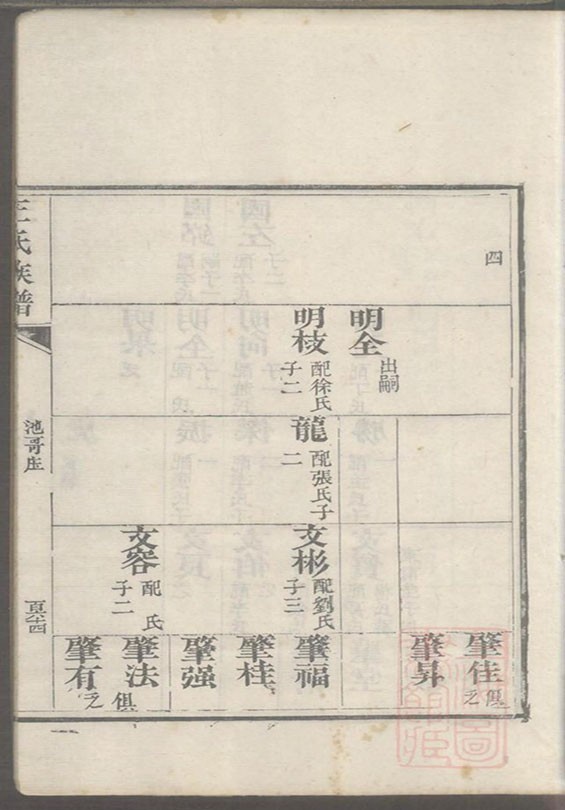 四
明全 出嗣
明枝 配徐氏子二
龍 配張氏子二
文彬 配劉氏子三
文容 配 氏子二
肇佳 俱乏
肇昇
肇福
肇桂
肇强
肇法 俱乏
肇有
王氏族譜
池哥庄